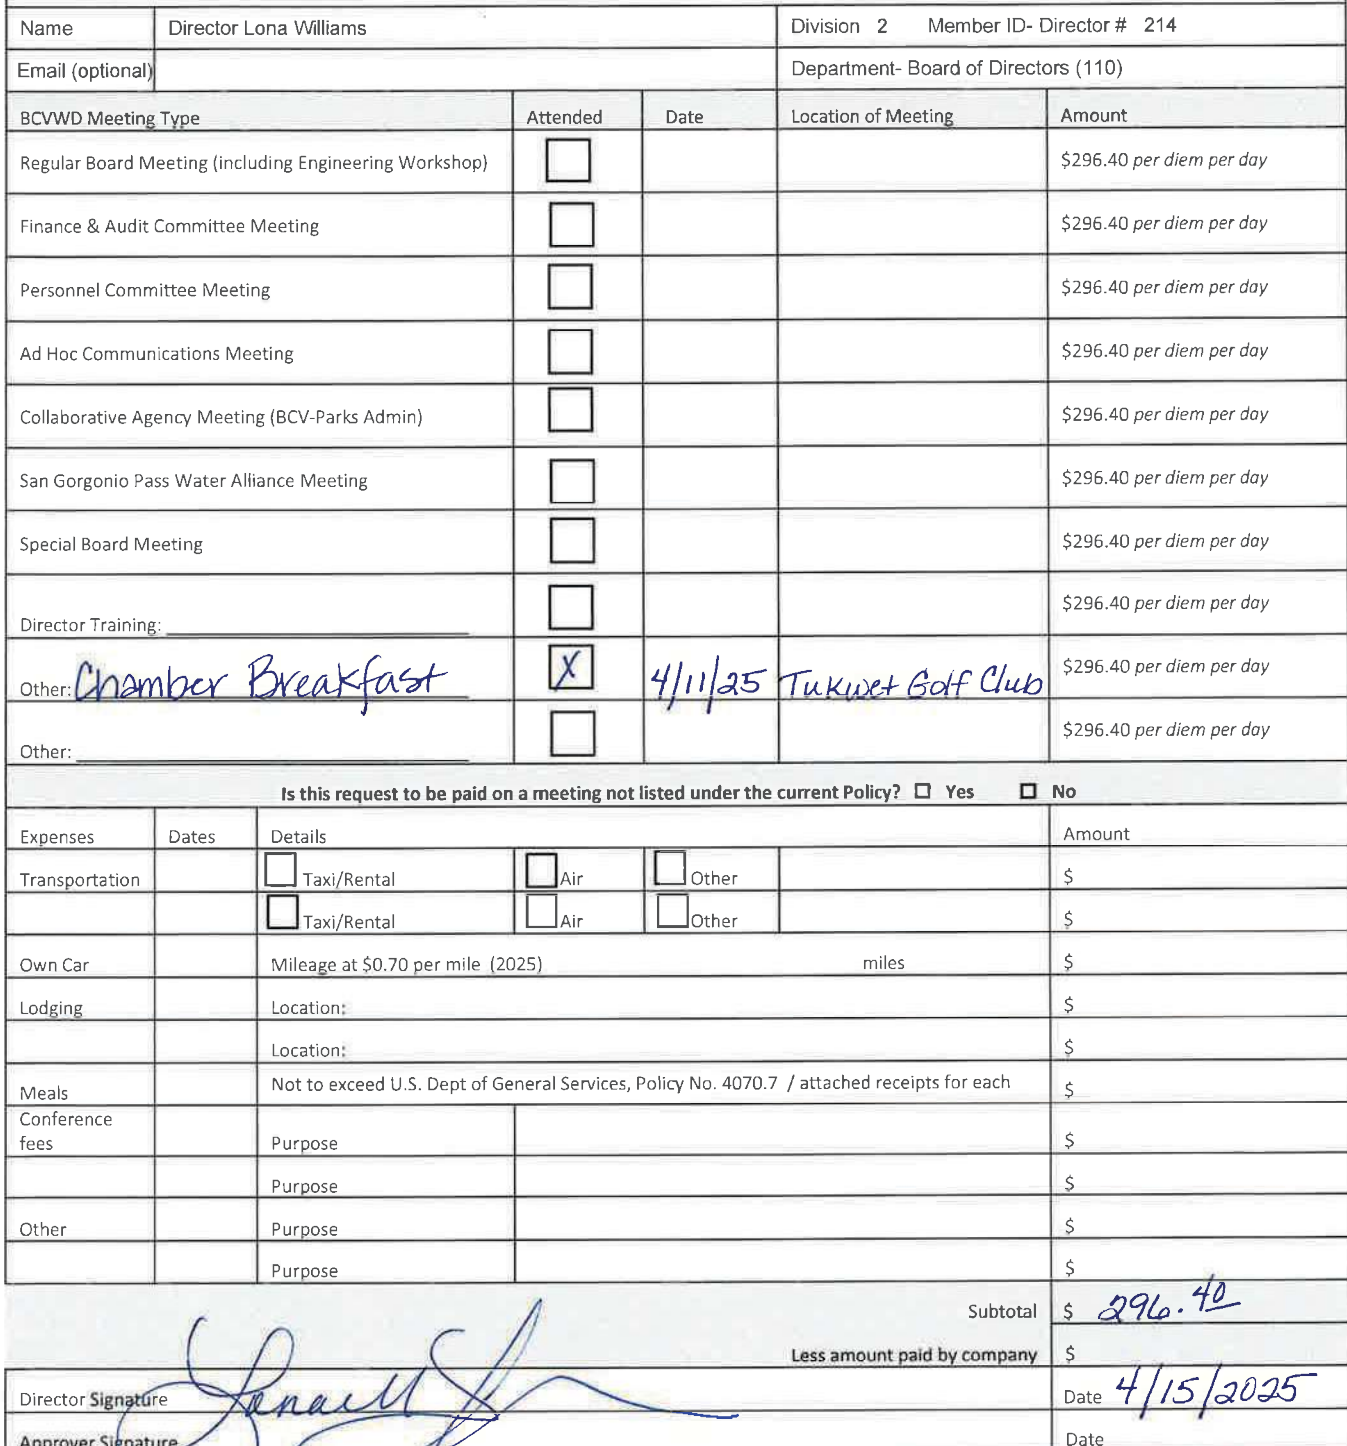 Name Director Lona Williams Division 2 Member ID- Director # 214
Email (optional) Department- Board of Directors (110)
BCVWD Meeting Type Attended Date Location of Meeting Amount
Regular Board Meeting (including Engineering Workshop) $296.40 per diem per day
Finance & Audit Committee Meeting $296.40 per diem per day
Personnel Committee Meeting $296.40 per diem per day
Ad Hoc Communications Meeting $296.40 per diem per day
Collaborative Agency Meeting (BCV-Parks Admin) $296.40 per diem per day
San Gorgonio Pass Water Alliance Meeting $296.40 per diem per day
Special Board Meeting $296.40 per diem per day
Director Training: $296.40 per diem per day
Other: Chamber Breakfast X 4/11/25 Tukwet Golf Club $296.40 per diem per day
Other: $296.40 per diem per day
Is this request to be paid on a meeting not listed under the current Policy? Yes No
Expenses Dates Details Amount
Transportation Taxi/Rental Air Other $
Taxi/Rental Air Other $
Own Car Mileage at $0.70 per mile (2025) miles $
Lodging Location: $
Location: $
Meals Not to exceed U.S. Dept of General Services, Policy No. 4070.7 / attached receipts for each $
Conference
fees Purpose $
Purpose $
Other Purpose $
Purpose $
Subtotal $ 296.40
Less amount paid by company $
Director Signature Date 4/15/2025
Approver Signature Date